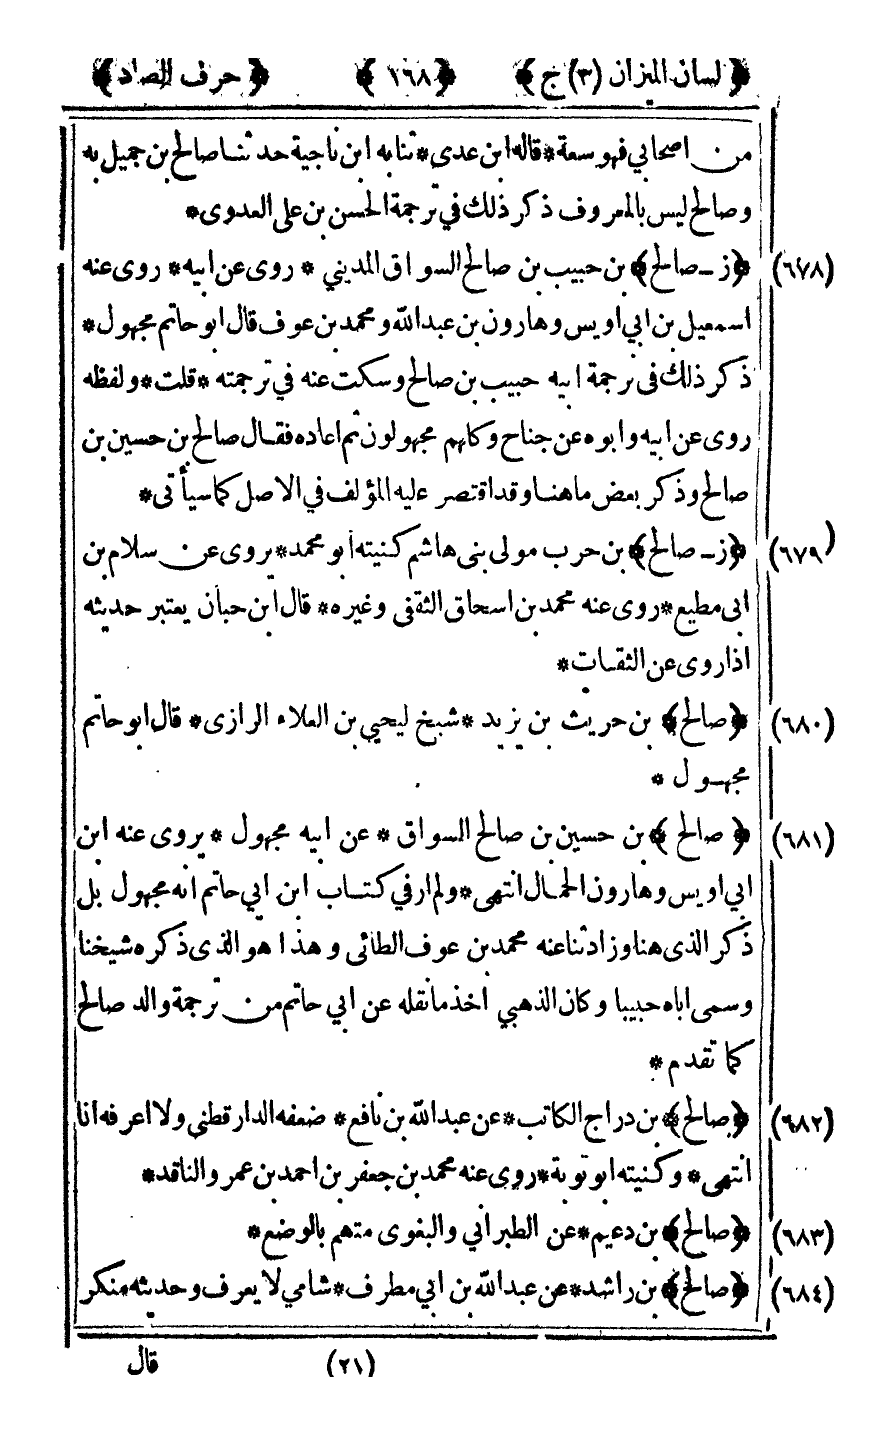 ﴿ لسان الميزان (٣) ج ﴾ ﴿ ١٦٨ ﴾ ﴿ حرف الصاد ﴾
من اصحابي فهو سعة * قاله ابن عدى * ثنا به ابن ناجية حدثنا صالح بن جميل به
وصالح ليس بالمعروف ذكر ذلك في ترجمة الحسن بن على العدوى *
(٦٧٨) ﴿ز - صالح﴾ بن حبيب بن صالح السواق المديني * روى عن ابيه * روى عنه
اسمعيل بن ابي اويس وهارون بن عبدالله ومحمد بن عوف قال ابو حاتم مجهول *
ذكر ذلك فى ترجمة ابيه حبيب بن صالح وسكت عنه في ترجمته * قلت * ولفظه
روى عن ابيه وابوه عن جناح وكلهم مجهولون ثم اعاده فقال صالح بن حسين بن
صالح وذكر بعض ما هنا وقد اقتصر عليه المؤلف في الاصل كما سيأتى *
(٦٧٩) ﴿ز - صالح﴾ بن حرب مولى بنى هاشم كنيته ابو محمد * يروى عن سلام بن
ابى مطيع * روى عنه محمد بن اسحاق الثقفى وغيره * قال ابن حبان يعتبر حديثه
اذا روى عن الثقات *
(٦٨٠) ﴿صالح﴾ بن حريث بن يزيد * شيخ ليحيى بن العلاء الرازى * قال ابو حاتم
مجهول *
(٦٨١) ﴿ صالح ﴾ بن حسين بن صالح السواق * عن ابيه مجهول * يروى عنه ابن
ابي اويس وهارون الحمال انتهى * ولم ار في كتاب ابن ابي حاتم انه مجهول بل
ذكر الذى هنا وزاد ثنا عنه محمد بن عوف الطائى وهذا هو الذى ذكره شيخنا
وسمى اباه حبيبا وكان الذهبي اخذ ما نقله عن ابي حاتم من ترجمة والد صالح
كما تقدم *
(٦٨٢) ﴿صالح﴾ بن دراج الكاتب * عن عبدالله بن نافع * ضعفه الدارقطنى ولا اعرفه انا
انتهى * وكنيته ابو توبة * روى عنه محمد بن جعفر بن احمد بن عمر والناقد *
(٦٨٣) ﴿صالح﴾ بن دعيم * عن الطبراني والبغوى متهم بالوضع *
(٦٨٤) ﴿صالح﴾ بن راشد * عن عبدالله بن ابي مطرف * شامي لا يعرف وحديثه منكر
(٢١) قال